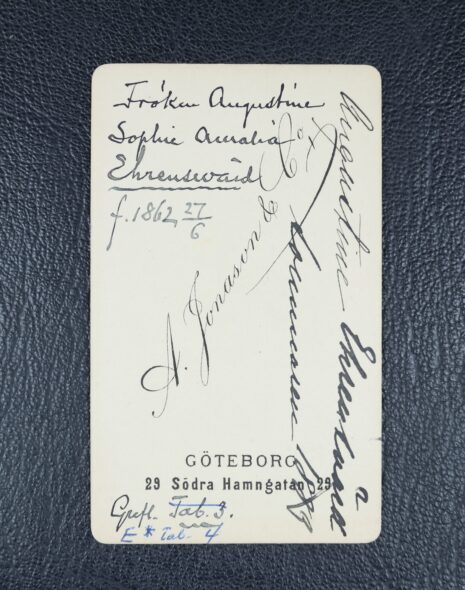 Fröken Augustine
Sophie Amalia
Ehrensvärd
f. 1862 27/6
A. Jonason & Co
Augustine Ehrensvärd
sommaren
GÖTEBORG
29 Södra Hamngatan 29
Grefl. Tab. 3.
E * Tab. 4